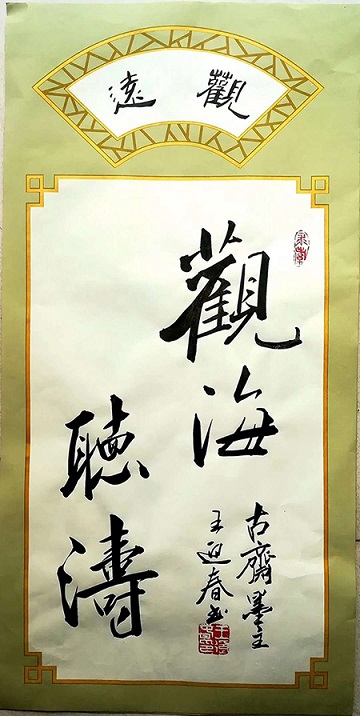 觀遠
觀海
聽濤
古齋墨主
王迎春书